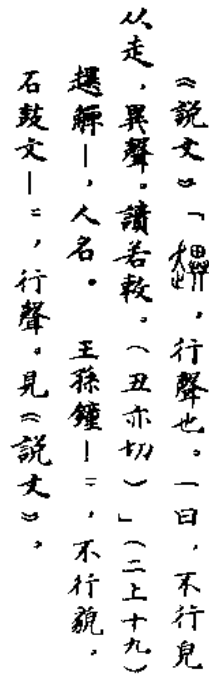 《說文》「趩,行聲也。一曰,不行皃
从走,異聲。讀若敕。(丑亦切)」(二上十九)
趩觶—,人名。 王孫鐘—=,不行貌。
石鼓文—=,行聲。見《說文》。